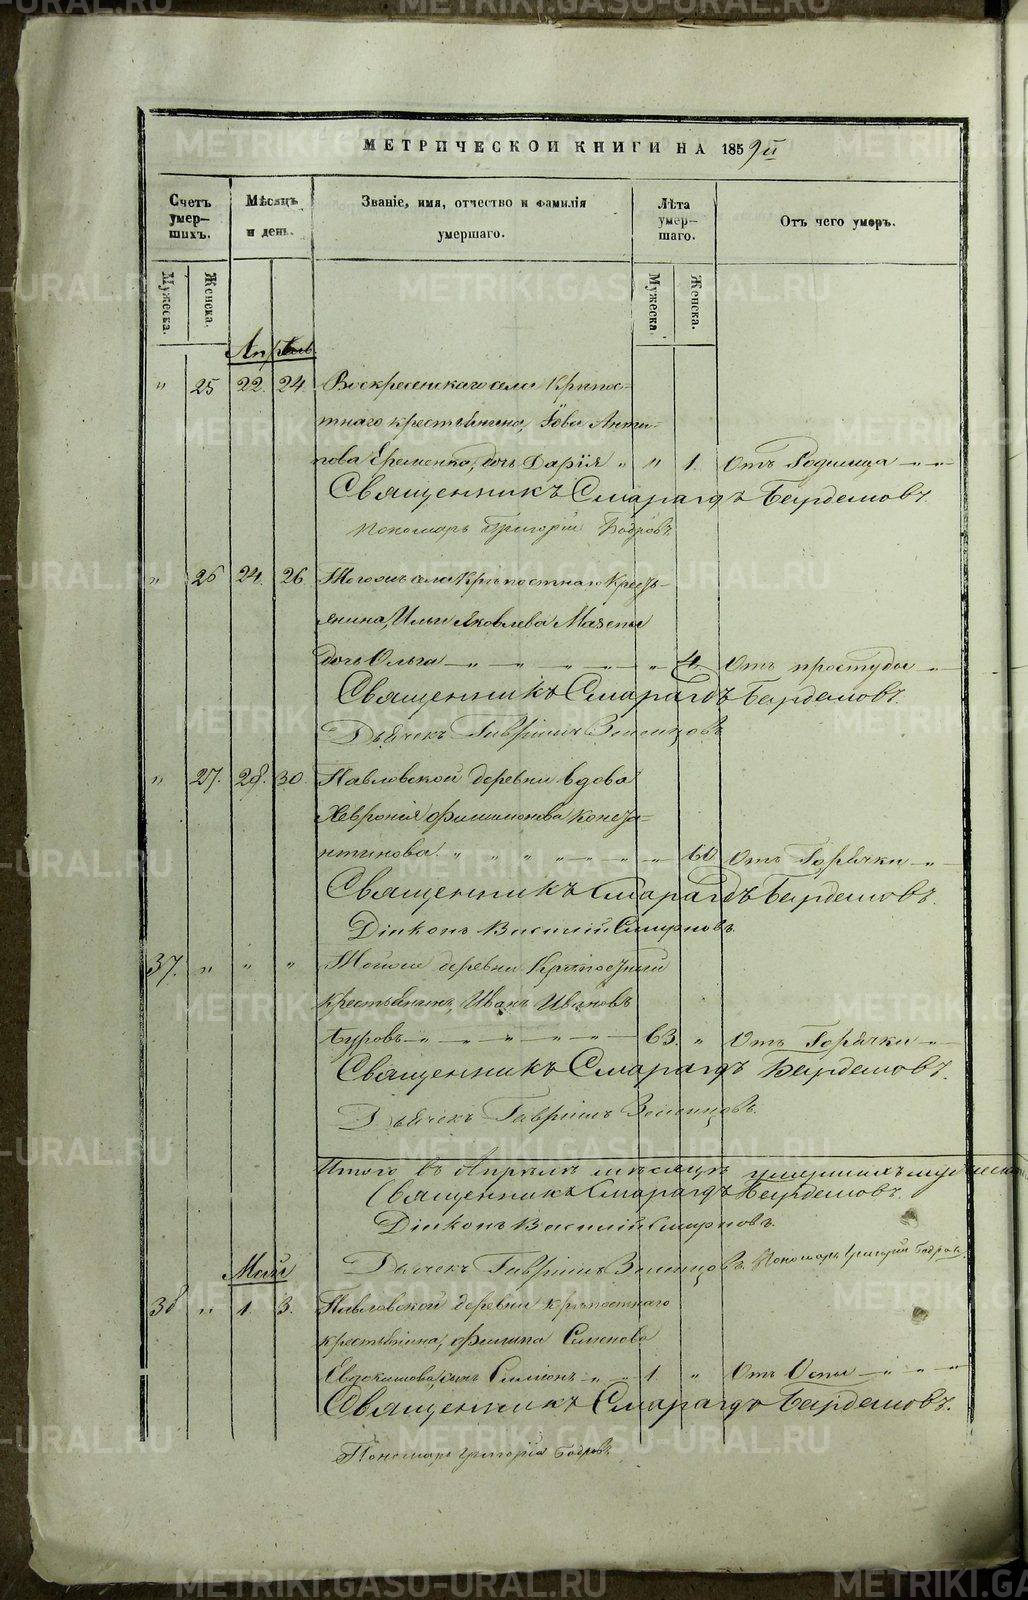 МЕТРИЧЕСКОЙ КНИГИ НА 1859й
Счетъ умер-
шихъ.
Мѣсяцъ
и день.
Званіе, имя, отчество и фамилія
умершаго.
Лѣта
умер-
шаго.
Отъ чего умеръ.
Мужеска.
Женска.
Мужеска.
Женска.
Апрѣль
" 25 22. 24. Воскресенскаго села Крѣпос-
тнаго крестьянина, Іова Анти-
пова Еременка, дочь Дарія " " 1. Отъ Родимца
Священникъ Смарагдъ Бардемовъ.
Пономарь Григорій Бодровъ.
" 26 24. 26. Тогожъ села Крѣпостнаго Крест-
янина, Ильи Яковлева Мазепы
дочь Ольга " 4. Отъ простуды
Священникъ Смарагдъ Бардемовъ.
Дьячекъ Гавріилъ Зеленцовъ
" 27. 28. 30. Павловской деревни вдова
Хевронія Филимонова Конста-
нтинова " 60 Отъ Горячки
Священникъ Смарагдъ Бардемовъ.
Діаконъ Василій Смирновъ
37. " " " Тойже деревни Крѣпостный
крестьянинъ Иванъ Ивановъ
Буровъ 63. " Отъ Горячки
Священникъ Смарагдъ Бардемовъ.
Дьячекъ Гавріилъ Зеленцовъ.
Итого въ Апрѣлѣ мѣсяцѣ умершихъ
Священникъ Смарагдъ Бардемовъ.
Діаконъ Василій Смирновъ.
Дьячекъ Гавріилъ Зеленцовъ. Пономарь Григорій Бодровъ.
Май
38 " 1. 3. Павловской деревни крѣпостнаго
крестьянина, Филипа Семенова
Евдокимова, сынъ Симіонъ 1. " Отъ Оспы
Священникъ Смарагдъ Бардемовъ.
Пономарь Григорій Бодровъ
METRIKI.GASO-URAL.RU